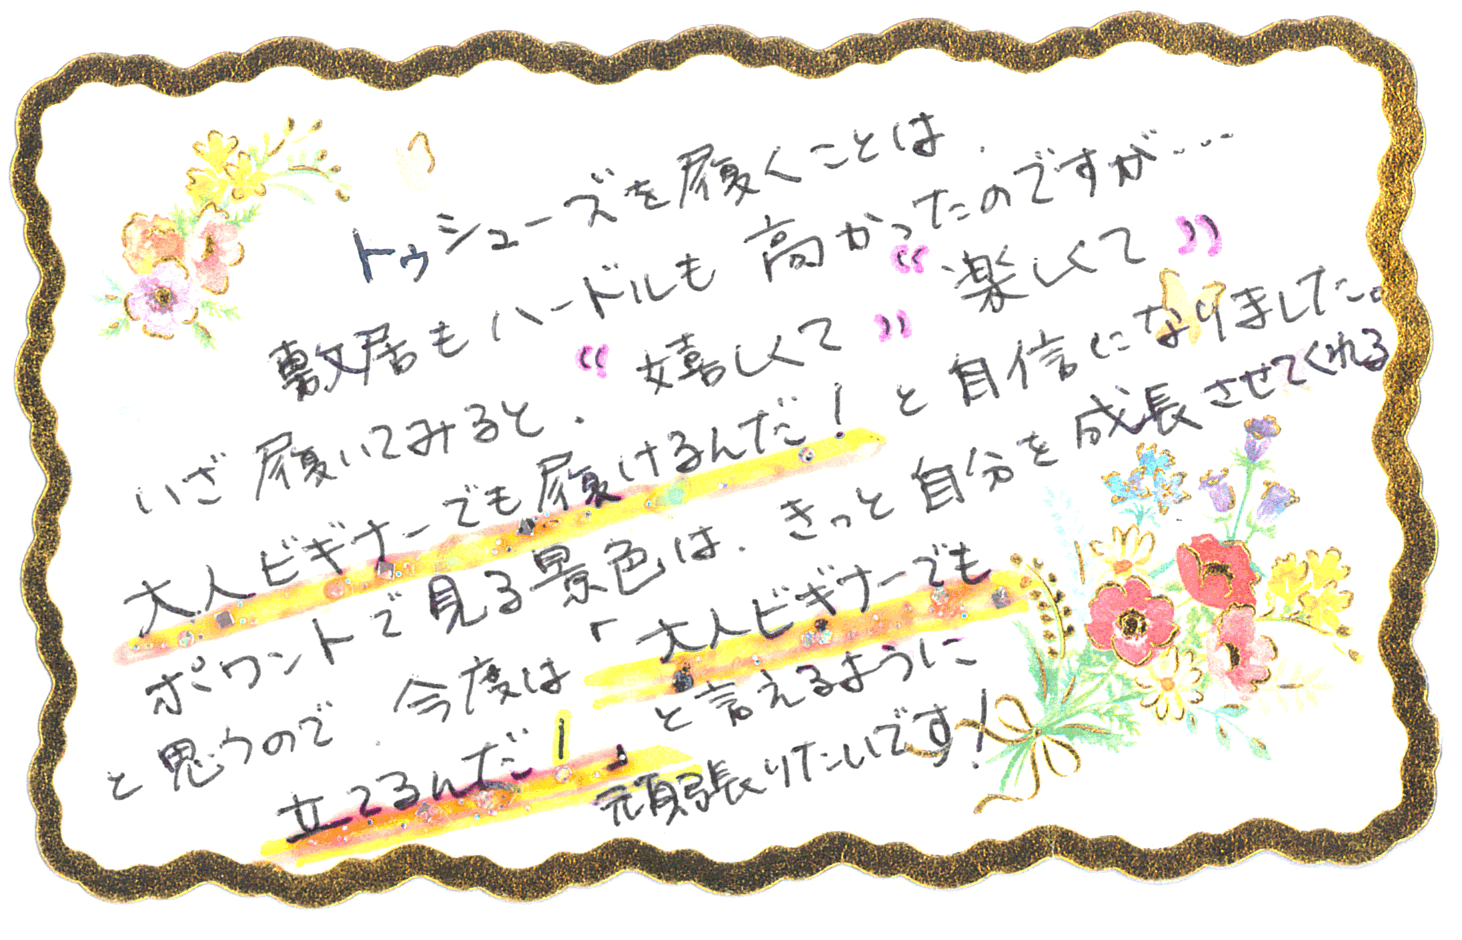 トゥシューズを履くことは、
敷居もハードルも高かったのですが…
いざ履いてみると、“嬉しくて”“楽しくて”
大人ビギナーでも履けるんだ！と自信になりました。
ポワントで見る景色は、きっと自分を成長させてくれる
と思うので、今度は「大人ビギナーでも
立てるんだ！」と言えるように
頑張りたいです！